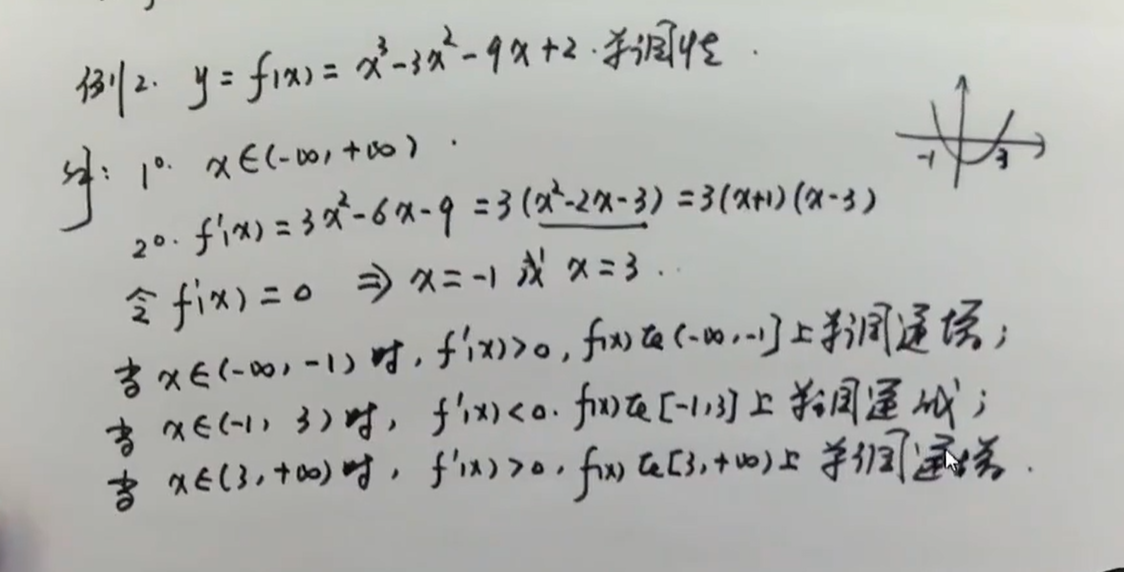 例2. y = f(x) = x³-3x²-9x+2. 单调性.
解: 1°. x∈(-∞, +∞).
-1 3
2°. f'(x) = 3x²-6x-9 = 3(x²-2x-3) = 3(x+1)(x-3)
令 f'(x) = 0 ⇒ x = -1 或 x = 3..
当 x∈(-∞, -1) 时, f'(x)>0, f(x) 在 (-∞, -1] 上单调递增;
当 x∈(-1, 3) 时, f'(x)<0. f(x) 在 [-1, 3] 上 单调递减;
当 x∈(3, +∞) 时, f'(x)>0, f(x) 在 [3, +∞) 上 单调递增.